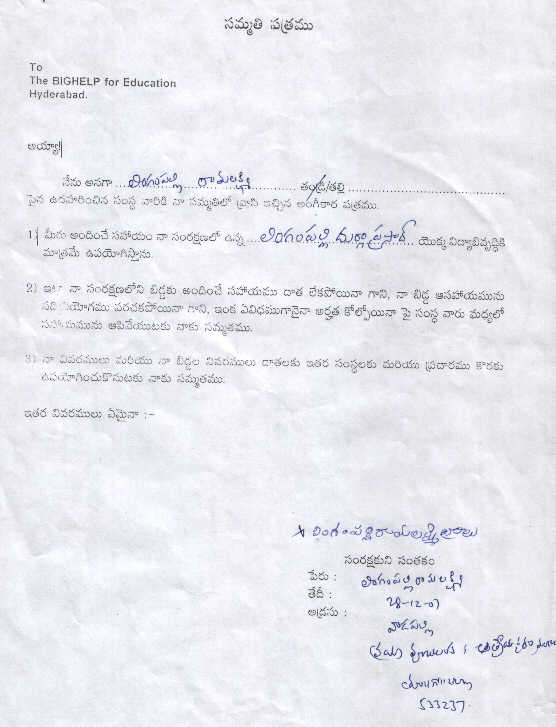 సమ్మతి పత్రము
To
The BIGHELP for Education
Hyderabad.
అయ్యా!
నేను అనగా ...లింగంపల్లి రామలక్ష్మి... తండ్రి/తల్లి ...
పైన ఉదహరించిన సంస్థ వారికి నా సమ్మతితో వ్రాసి ఇచ్చిన అంగీకార పత్రము.
1) మీరు అందించే సహాయం నా సంరక్షణలో ఉన్న ...లింగంపల్లి దుర్గాప్రసాద్ యొక్క విద్యాభివృద్ధికి
మాత్రమే ఉపయోగిస్తాను.
2) ఇలా నా సంరక్షణలోని బిడ్డకు అందించే సహాయము దాత లేకపోయినా గాని, నా బిడ్డ ఆసహాయమును
సద్వినియోగము పరచకపోయినా గాని, ఇంక ఏవిధముగానైనా అర్హత కోల్పోయినా పై సంస్థ వారు మధ్యలో
సహాయమును ఆపివేయుటకు నాకు సమ్మతము.
3) నా వివరములు మరియు నా బిడ్డల వివరములు దాతలకు ఇతర సంస్థలకు మరియు ప్రచారము కొరకు
ఉపయోగించుకొనుటకు నాకు సమ్మతము.
ఇతర వివరములు ఏమైనా :-
x లింగంపల్లి రామలక్ష్మి
సంరక్షకుని సంతకం
పేరు : లింగంపల్లి రామలక్ష్మి
తేదీ : 28-12-07
అడ్రసు : వాడపల్లి
533237.